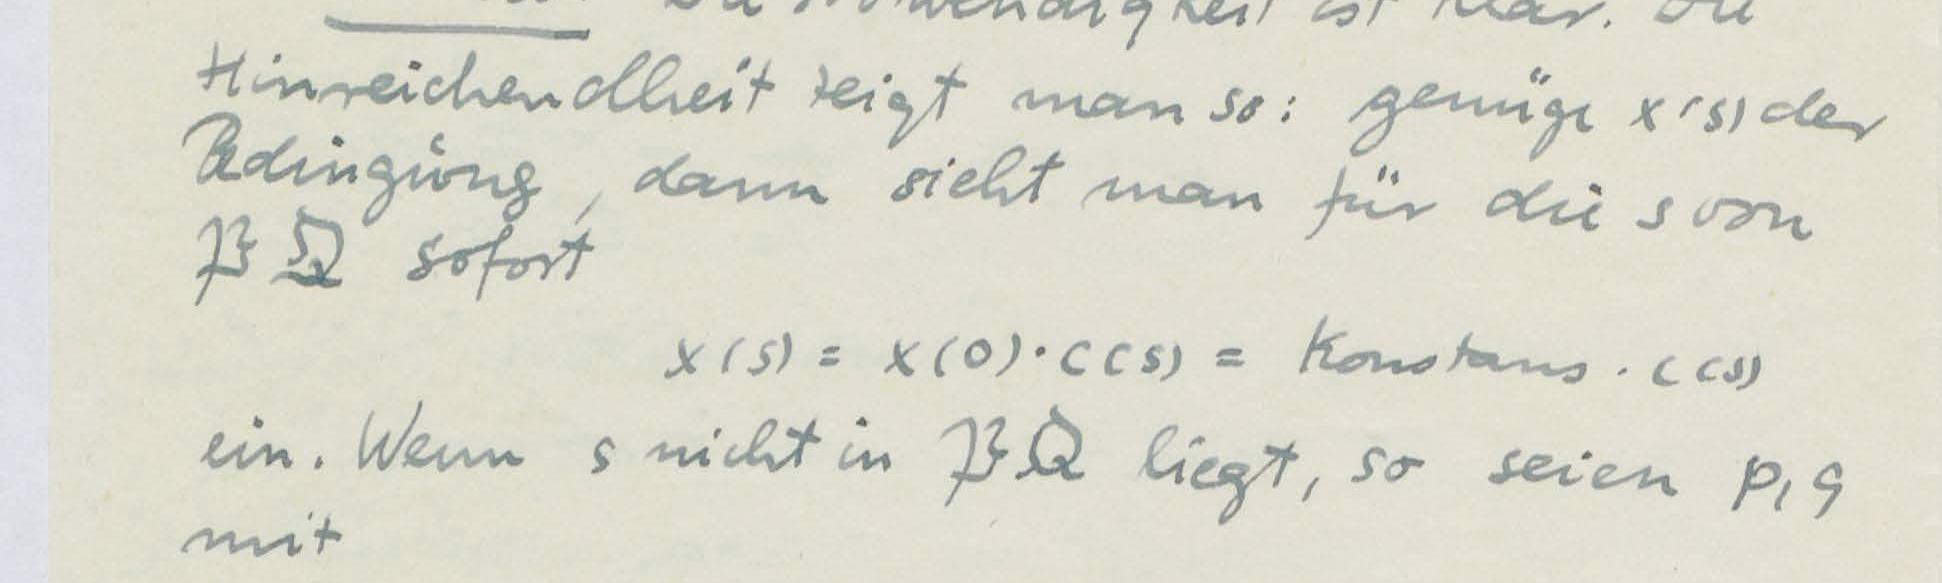 Die Notwendigkeit ist klar. Die
Hinreichendheit zeigt man so: genüge x(s) der
Bedingung, dann sieht man für die s von
𝔓𝔔 sofort
x(s) = x(0)·c(s) = Konstans · c(s)
ein. Wenn s nicht in 𝔓𝔔 liegt, so seien p, q
mit